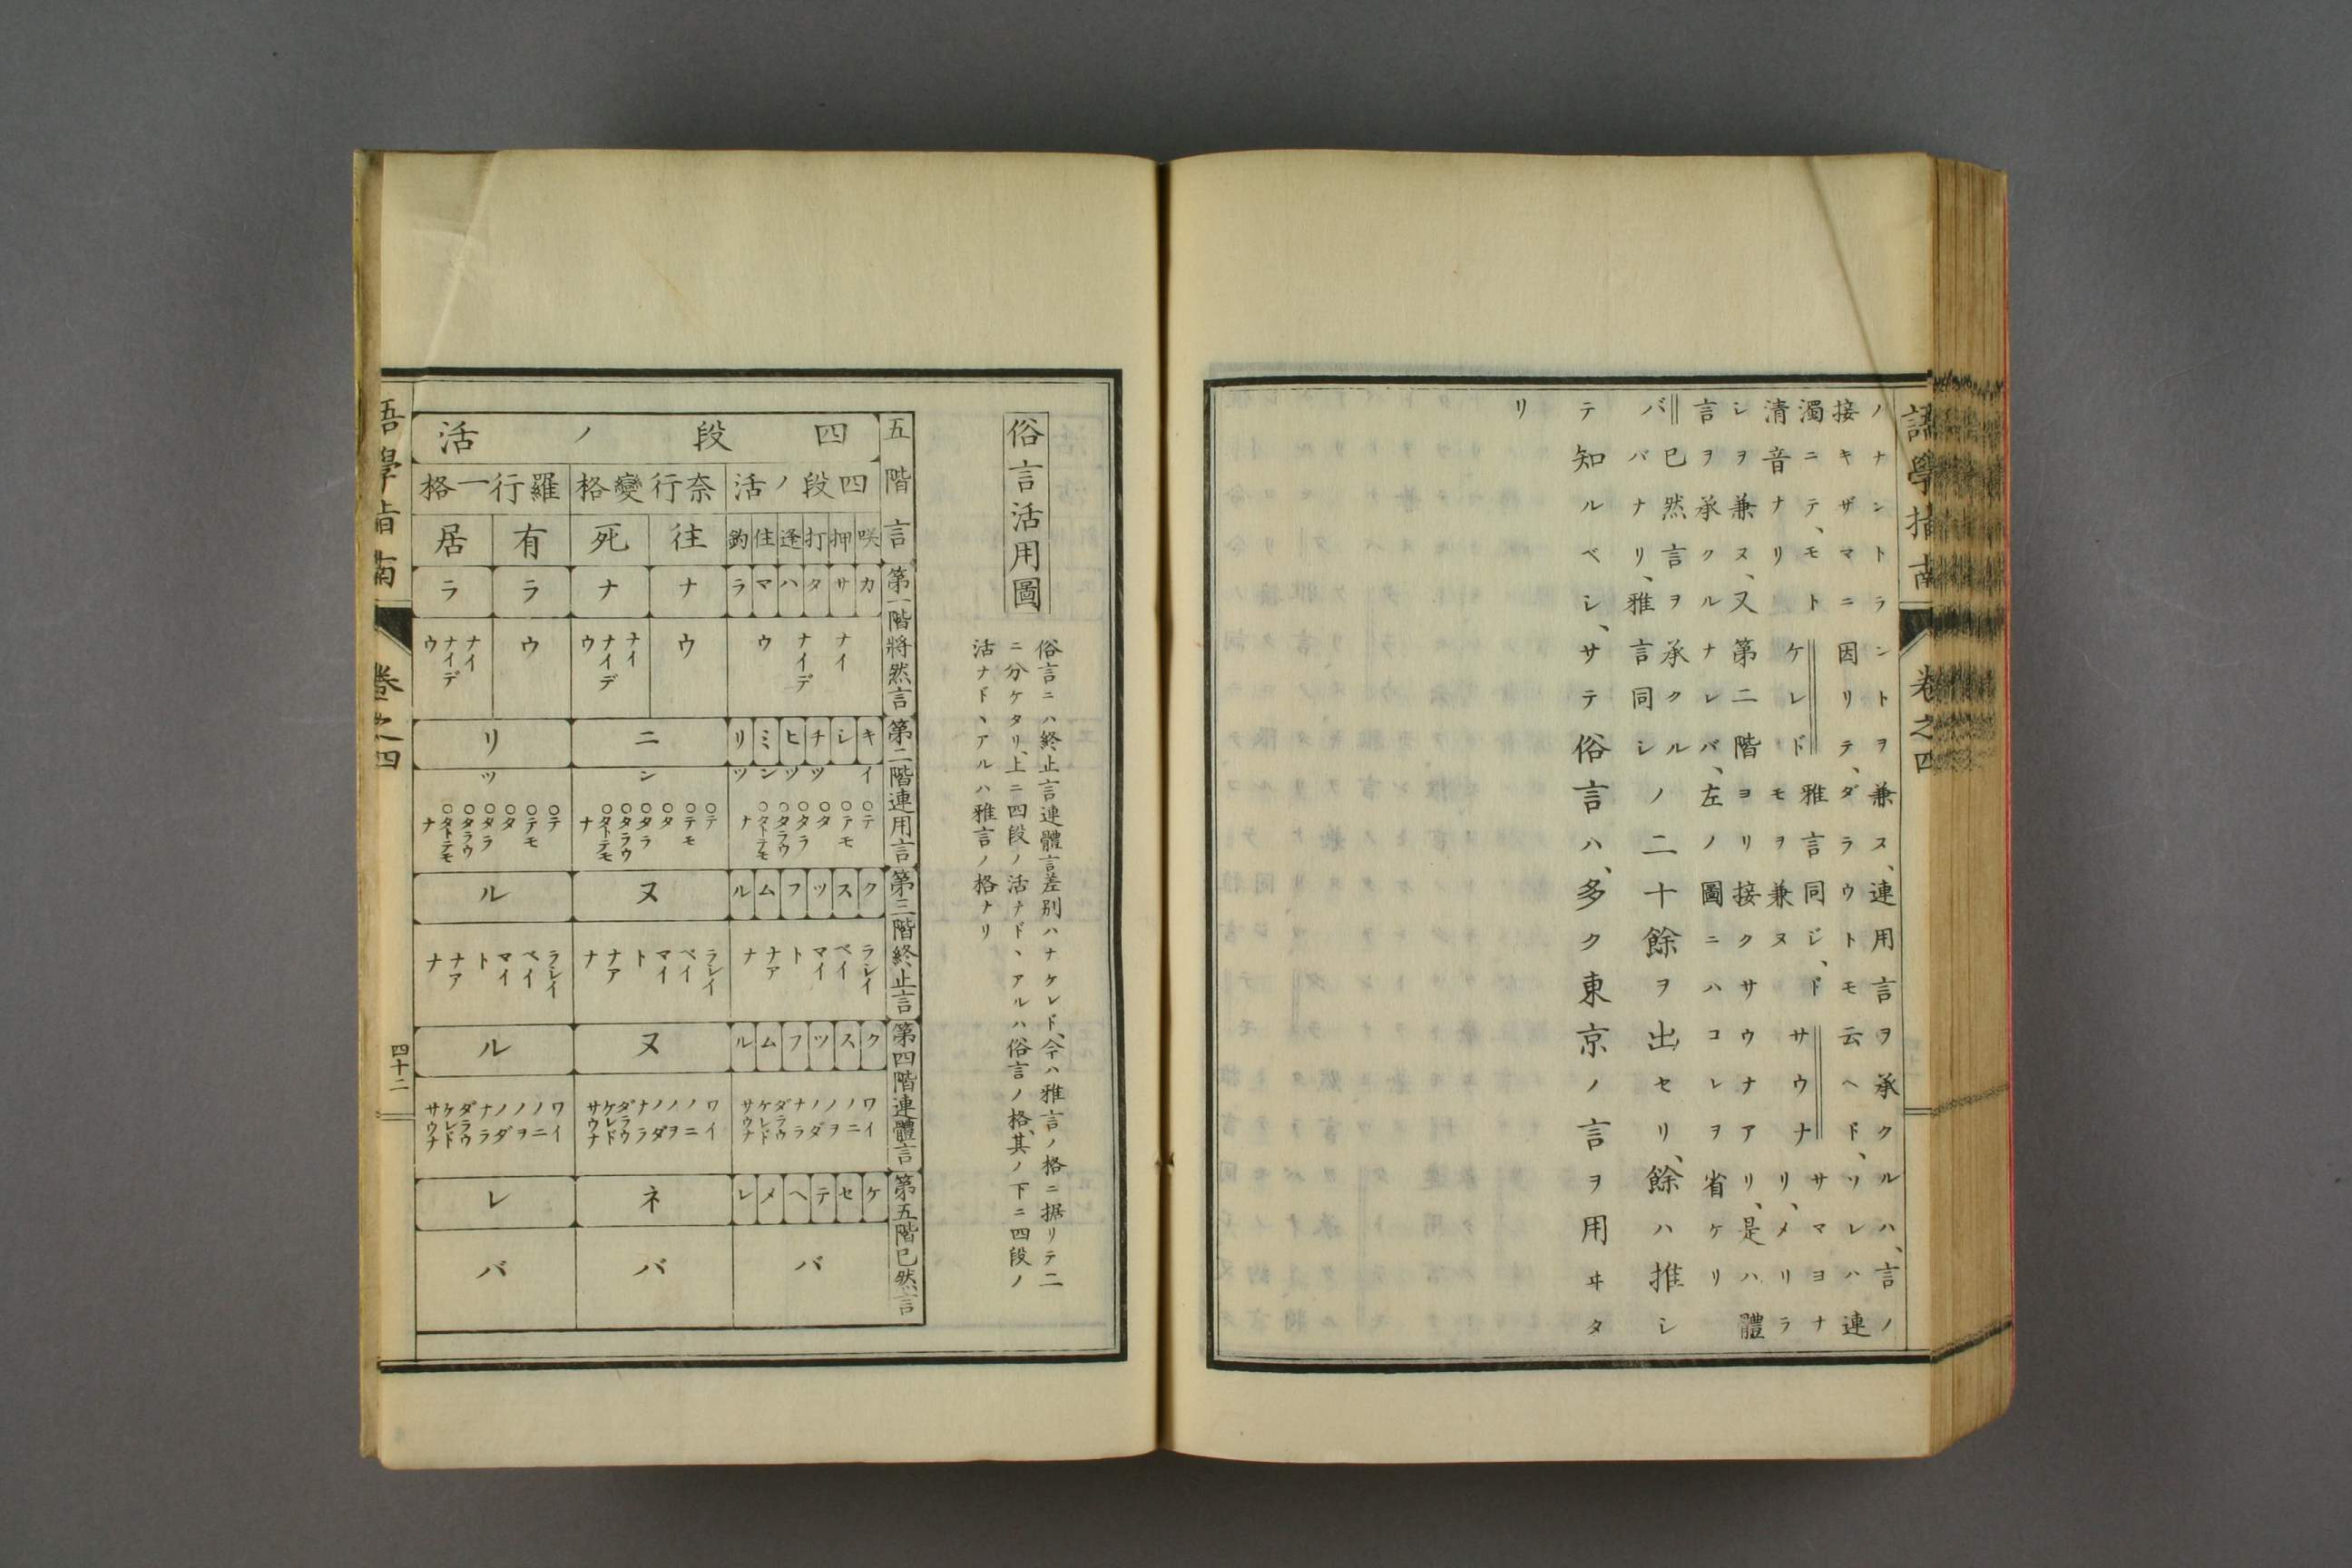 語學指南 卷之四
ノナントランントヲ兼ス、連用言ヲ承クルハ、言ノ
接キザマニ因リテ、ダラウトモ云ヘド、ソレハ連
濁ニテ、モト
清音ナリ
ケレド
雅言同ジ、ド
モヲ兼ヌ
サウナ
サマヨナ
リ、メリラ
シヲ兼ヌ、又第二階ヨリ接クサウナアリ、是ハ體
言ヲ承クルナレバ、左ノ圖ニハコレヲ省ケリ
バ
已然言ヲ承クル
バナリ、雅言同シ
ノ二十餘ヲ出セリ、餘ハ推シ
テ知ルベシ、サテ俗言ハ、多ク東京ノ言ヲ用ヰタ
リ
俗言活用圖
俗言ニハ終止言連體言差別ハナケレド、今ハ雅言ノ格ニ据リテ二
ニ分ケタリ、上ニ四段ノ活ナド、アルハ俗言ノ格、其ノ下ニ四段ノ
活ナド、アルハ雅言ノ格ナリ
五階言
四段ノ活
四段ノ活 奈行變格 羅行一格
咲 押 打 逢 住 釣 往 死 有 居
第一階將然言
カ サ タ ハ マ ラ ナ ナ ラ ラ
ナイ ナイデ ウ
ウ
ナイ ナイデ ウ
ウ
ナイ ナイデ ウ
第二階連用言
キ シ チ ヒ ミ リ ニ リ
イ ツ ツ ン ツ ン ツ
○テ ○テモ ○タ ○タラ ○タラウ ○タトテモ ナ
○テ ○テモ ○タ ○タラ ○タラウ ○タトテモ ナ
○テ ○テモ ○タ ○タラ ○タラウ ○タトテモ ナ
第三階終止言
ク ス ツ フ ム ル ヌ ル
ラシイ ベイ マイ ト ナア ナ
ラシイ ベイ マイ ト ナア ナ
ラシイ ベイ マイ ト ナア ナ
第四階連體言
ク ス ツ フ ム ル ヌ ル
ワイ ノニ ノヲ ノダ ナラ ダラウ ケレド サウナ
ワイ ノニ ノヲ ノダ ナラ ダラウ ケレド サウナ
ワイ ノニ ノヲ ノダ ナラ ダラウ ケレド サウナ
第五階已然言
ケ セ テ ヘ メ レ ネ レ
バ バ バ
語學指南 卷之四 四十二